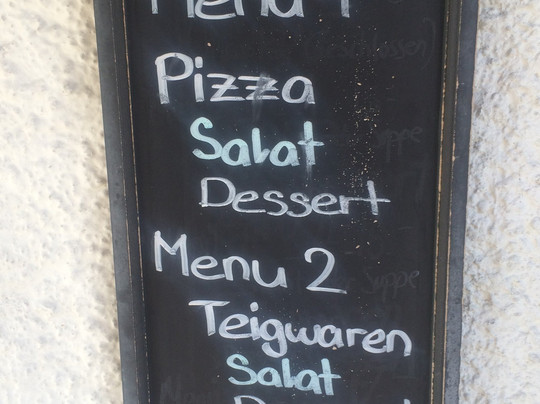 Menu 1
Pizza
Salat
Dessert
Menu 2
Teigwaren
Salat